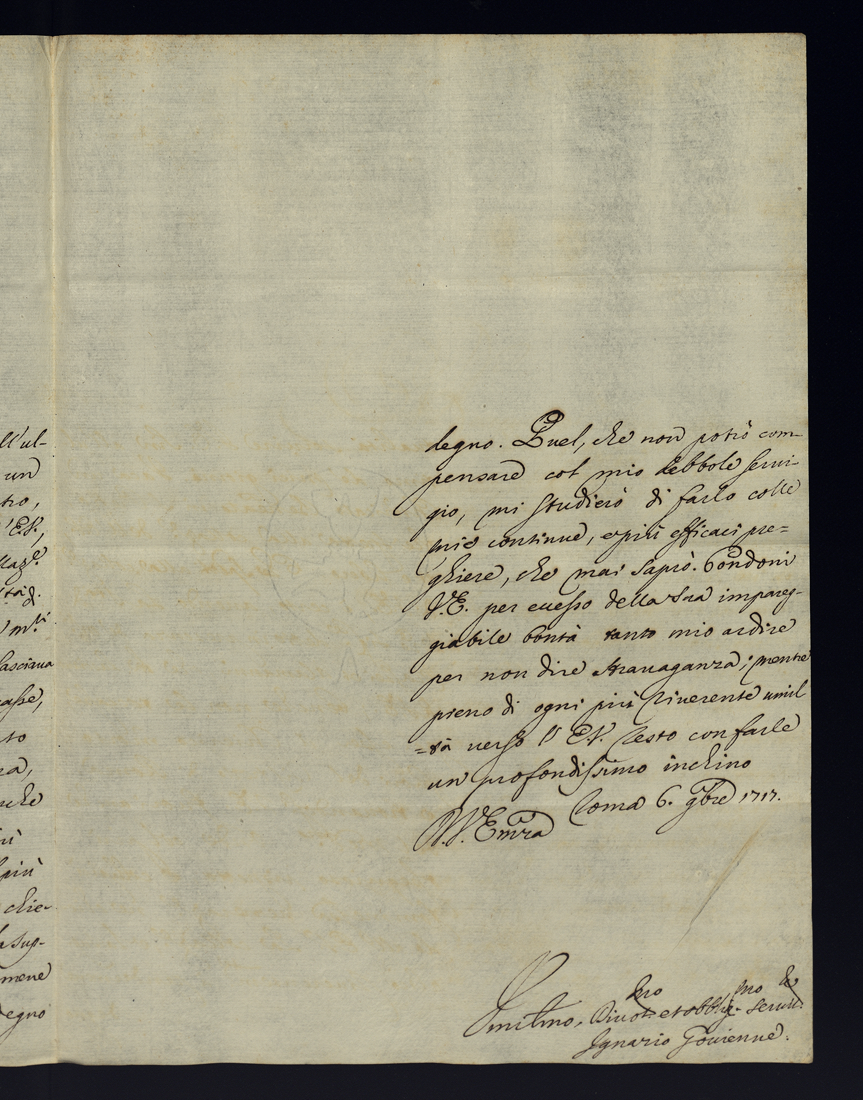 ll'ul-
un
tro,
'Em.,
llaz.e
m.ti
lasciava
casse,
to
za,
nche
più
chie-
la sup-
mene
degno
degno. Quel, che non potrò com-
pensare col mio debbole servi-
gio, mi studierò di farlo colle
mie continue, e più efficaci pre=
ghiere, che mai saprò. Condoni
V.E. per eccesso della Sua impareg-
giabile bontà tanto mio ardire
per non dire stravaganza; mentre
pieno di ogni più riverente umil
=tà verso l'Em. resto con farle
un profondissimo inchino
D. V. Emza Roma 6. 9bre 1717.
Umilmo, Divotmo et obbligmo Servre
Ignazio Gouienne.